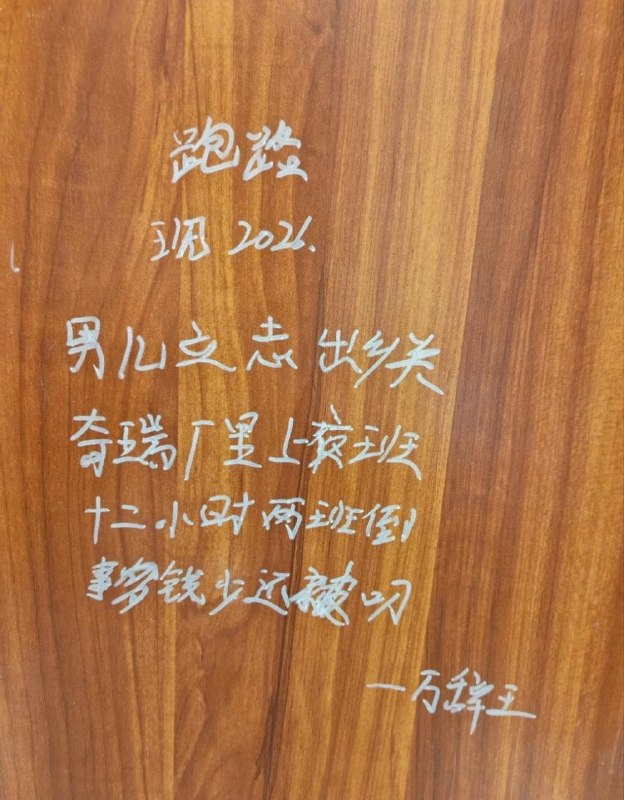 跑路
现 2026.
男儿立志出乡关
奇瑞厂里上夜班
十二小时两班倒
事多钱少还被叼
一万辞王